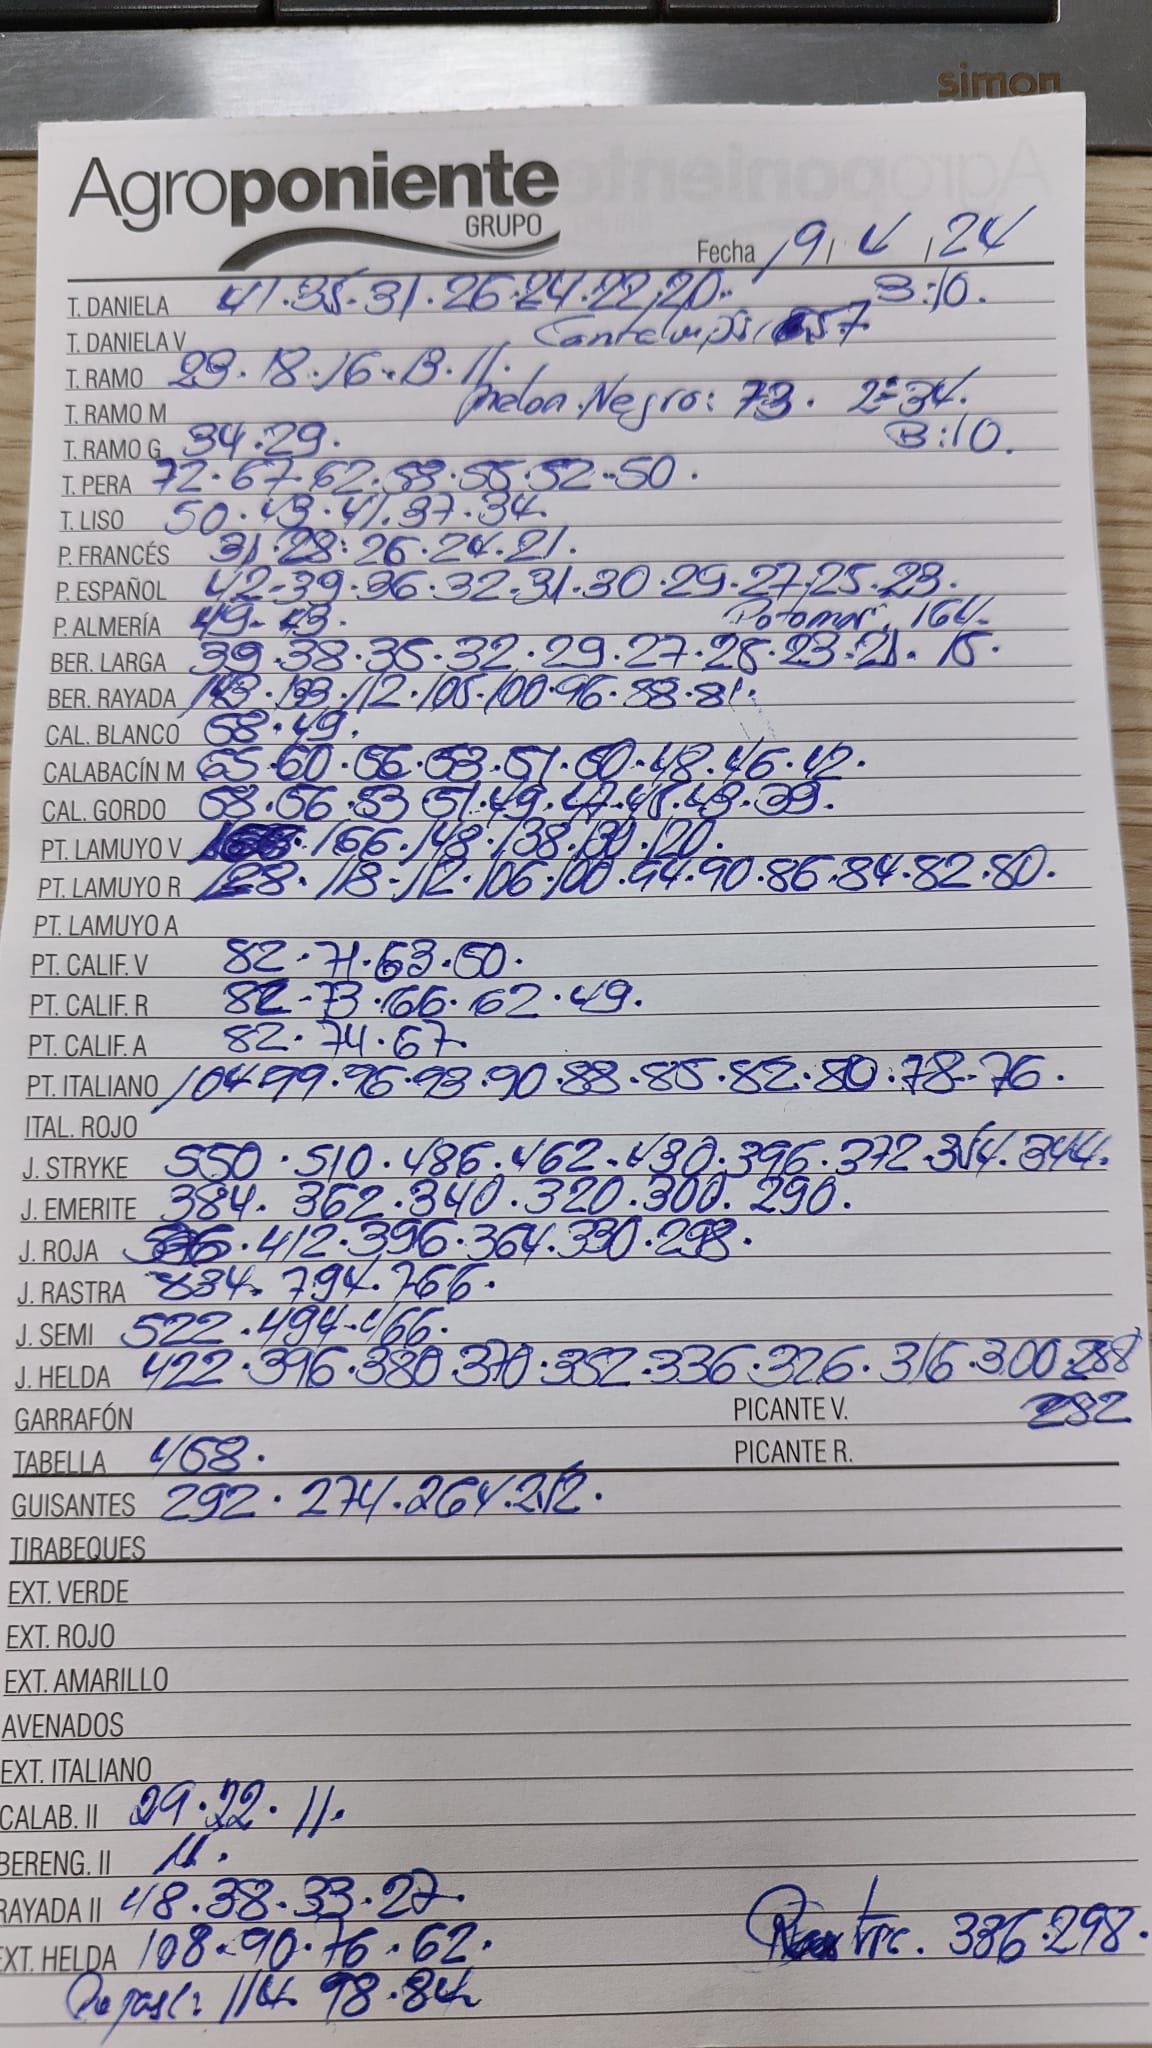 simon
Agroponiente
GRUPO
Fecha 19, 4, 24
T. DANIELA 41.35.31.26.24.22.20. B:10.
T. DANIELA V 57
T. RAMO 23.18.16.13.11.
T. RAMO M melon Negro: 73. 2ª 34.
T. RAMO G 34.29. B:10.
T. PERA 72.67.62.58.55.52.50.
T. LISO 50.43.41.37.34.
P. FRANCÉS 31.28.26.24.21.
P. ESPAÑOL 42.39.36.32.31.30.29.27.25.23.
P. ALMERÍA 49.43. 164.
BER. LARGA 39.38.35.32.29.27.25.23.21.15.
BER. RAYADA 143.133.112.105.100.96.88.81.
CAL. BLANCO 58.49.
CALABACÍN M 65.60.56.53.51.50.48.46.42.
CAL. GORDO 58.56.53.51.49.47.45.43.39.
PT. LAMUYO V 166.148.138.130.120.
PT. LAMUYO R 128.118.112.106.100.94.90.86.84.82.80.
PT. LAMUYO A
PT. CALIF. V 82.71.63.50.
PT. CALIF. R 82.73.66.62.49.
PT. CALIF. A 82.74.67.
PT. ITALIANO 104.99.96.93.90.88.85.82.80.78.76.
ITAL. ROJO
J. STRYKE 550.510.486.462.430.396.372.354.344.
J. EMERITE 384.362.340.320.300.290.
J. ROJA .412.396.364.330.298.
J. RASTRA 834.794.766.
J. SEMI 522.494.466.
J. HELDA 422.396.380.370.352.336.326.316.300.288
GARRAFÓN PICANTE V. 282
TABELLA 458. PICANTE R.
GUISANTES 292.274.264.252.
TIRABEQUES
EXT. VERDE
EXT. ROJO
EXT. AMARILLO
AVENADOS
EXT. ITALIANO
CALAB. II 29.22.11.
BERENG. II 11.
RAYADA II 48.38.33.27.
EXT. HELDA 108.90.76.62. 336.298.
114.98.84